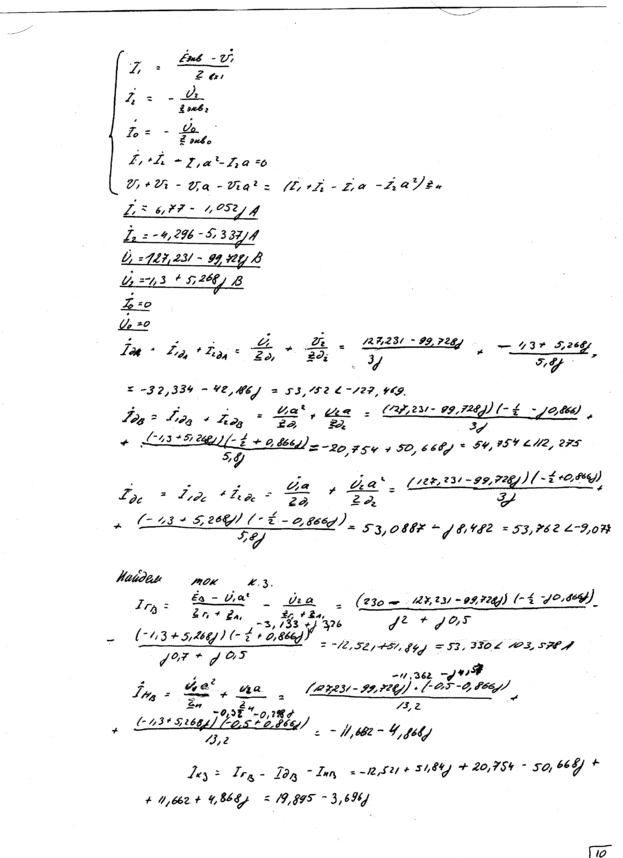 İ₁ = (Ėэкв - U̇₁) / Z вх1
İ₂ = - U̇₂ / Z экв₂
İ₀ = - U̇₀ / Z экв₀
İ₁ + İ₂ - İ₁a² - I₂a = 0
U₁ + U₂ - U̇₁a - U₂a² = (İ₁ + İ₂ - İ₁a - İ₂a²) Zн
İ₁ = 6,77 - 1,052j A
İ₂ = -4,296 - 5,337j A
U̇₁ = 127,231 - 99,728j B
U̇₂ = -1,3 + 5,268j B
İ₀ = 0
U̇₀ = 0
İдA = İ₁дA + İ₂дA = U̇₁ / Zд₁ + U̇₂ / Zд₂ = (127,231 - 99,728j) / 3j + (-1,3 + 5,268j) / 5,8j =
= -32,334 - 42,186j = 53,152 ∠-127,469.
İдB = İ₁дB + İ₂дB = U₁a² / Zд₁ + U₂a / Zд₂ = (127,231 - 99,728j)(-1/2 - j0,866) / 3j +
+ (-1,3 + 5,268j)(-1/2 + 0,866j) / 5,8j = -20,754 + 50,668j = 54,754 ∠112,275
İдC = İ₁дC + İ₂дC = U̇₁a / Zд₁ + U̇₂a² / Zд₂ = (127,231 - 99,728j)(-1/2 + 0,866j) / 3j +
+ (-1,3 + 5,268j)(-1/2 - 0,866j) / 5,8j = 53,0887 - j8,482 = 53,762 ∠-9,077
Найдем ток к.з.
IгB = (ĖB - U̇₁a²) / (Zг₁ + Zл₁) - U̇₂a / (Zг₂ + Zл₁) = (230 - 127,231 - 99,728j)(-1/2 - j0,866j) / (j2 + j0,5) -
-3,133 + j3,76
- (-1,3 + 5,268j)(-1/2 + 0,866j) / (j0,7 + j0,5) = -12,521 + 51,84j = 53,330 ∠103,578 A
-11,362 - j4,57
İнB = U̇₁a² / Zн + U₂a / Zн = (127,231 - 99,728j) · (-0,5 - 0,866j) / 13,2 +
-0,3 -0,298j
+ (-1,3 + 5,268j)(-0,5 + 0,866j) / 13,2 = -11,662 - 4,868j
Iкз = IгB - IдB - IнB = -12,521 + 51,84j + 20,754 - 50,668j +
+ 11,662 + 4,868j = 19,895 - 3,696j
10